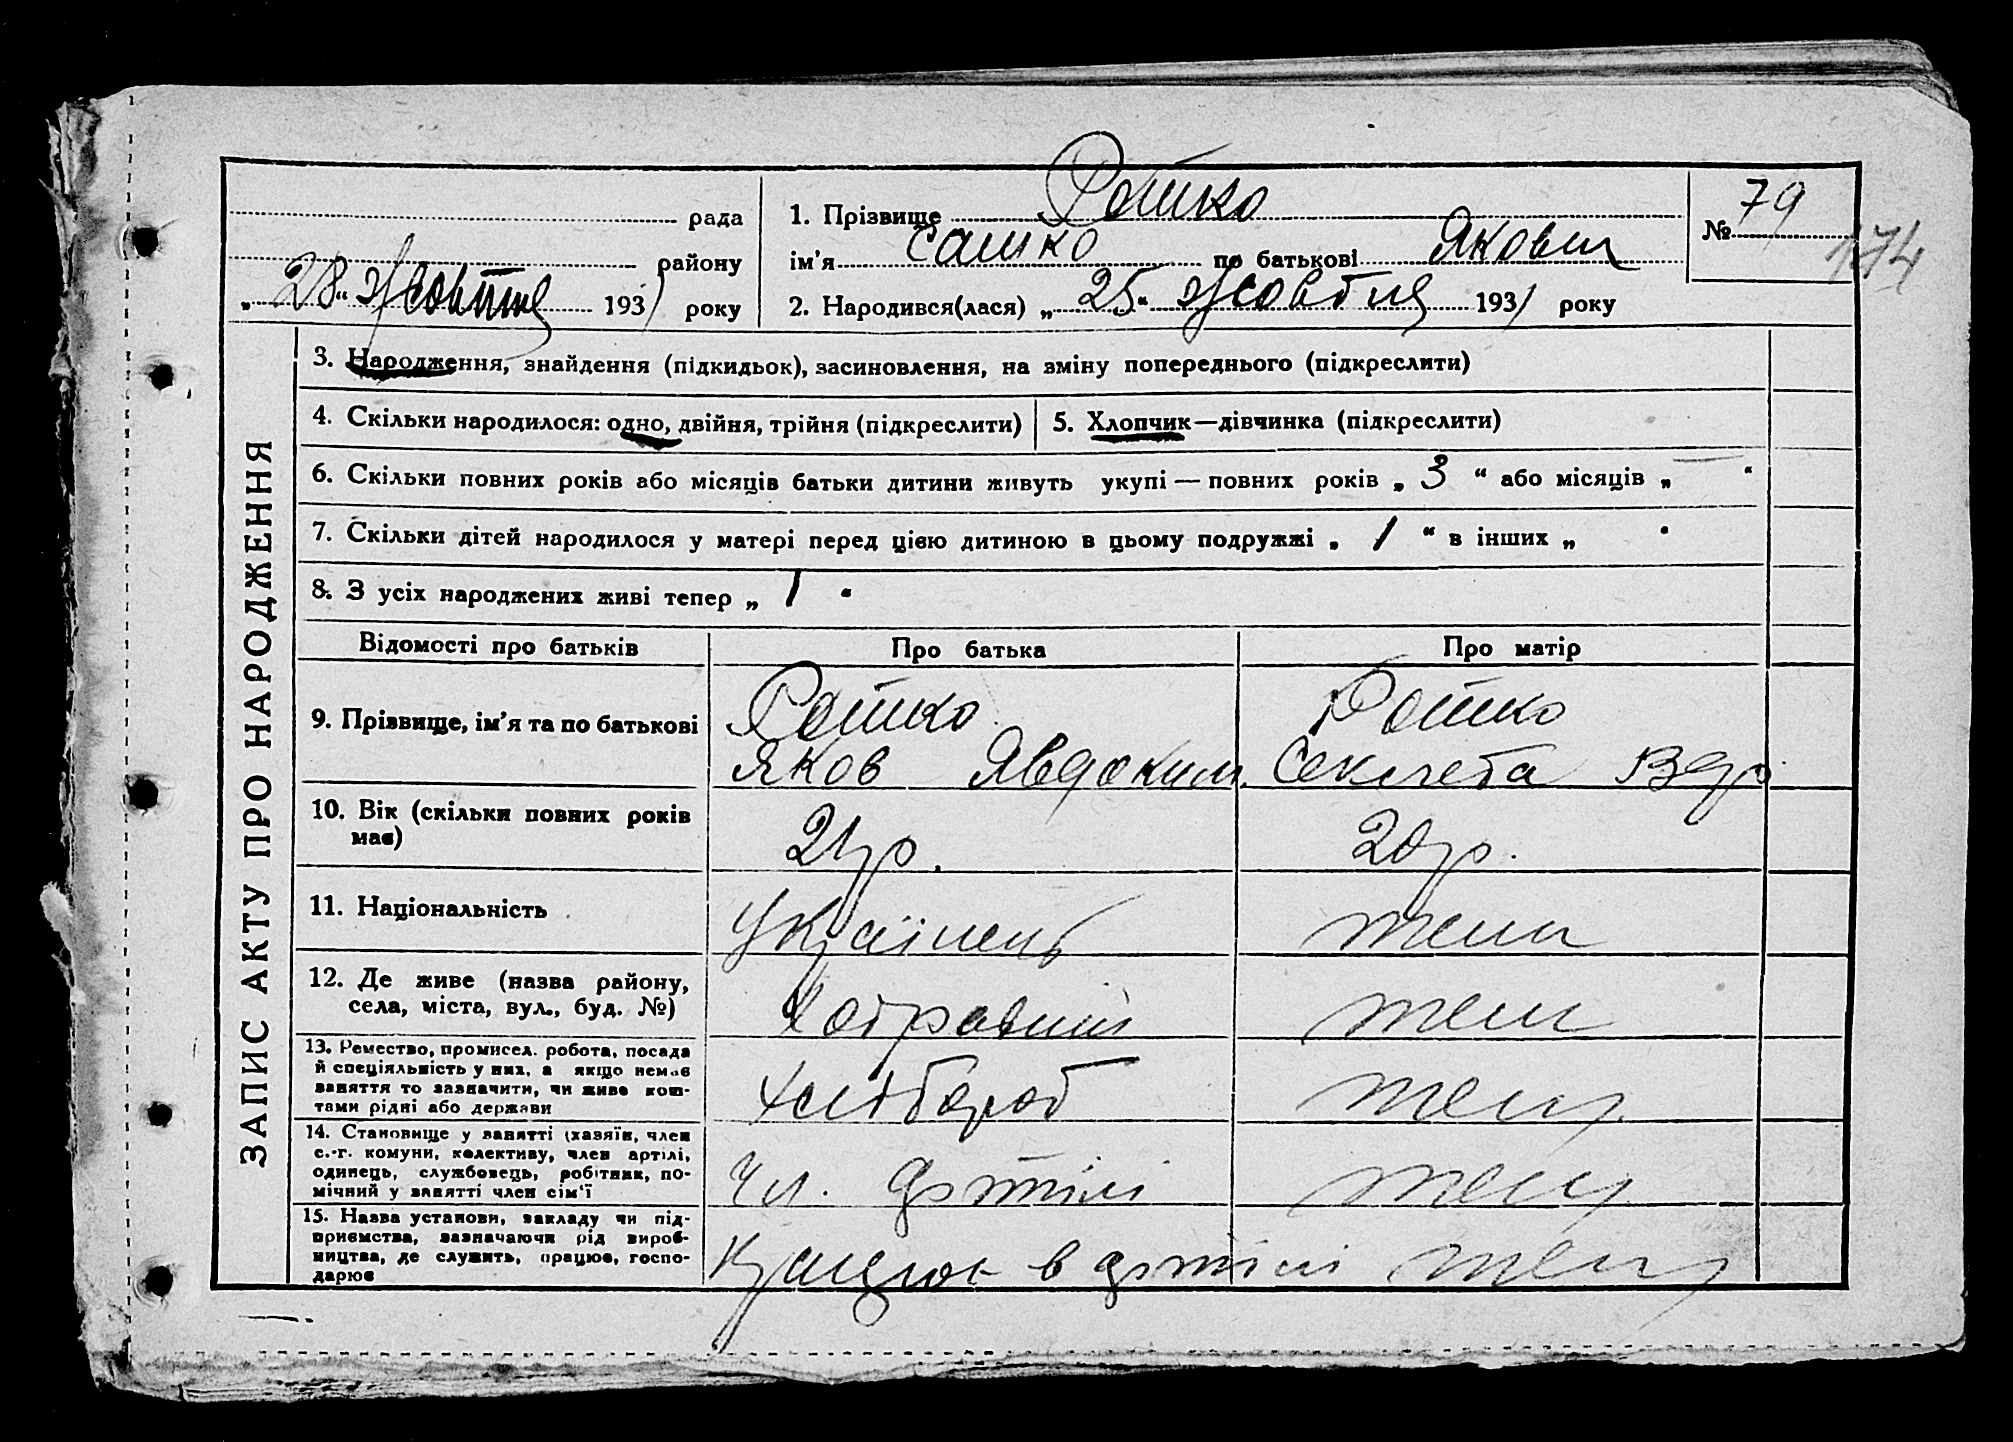 79
174
рада
1. Прізвище Ротко
№
району
ім'я Сашко по батькові Якович
„28“ Жовтня 1931 року
2. Народився(лася) „25“ Жовтня 1931 року
ЗАПИС АКТУ ПРО НАРОДЖЕННЯ
3. Народження, знайдення (підкидьок), засиновлення, на зміну попереднього (підкреслити)
4. Скільки народилося: одно, двійня, трійня (підкреслити)
5. Хлопчик—дівчинка (підкреслити)
6. Скільки повних років або місяців батьки дитини живуть укупі — повних років „ 3 “ або місяців „ — “
7. Скільки дітей народилося у матері перед цією дитиною в цьому подружжі „ 1 “ в інших „ “
8. З усіх народжених живі тепер „ 1 “
Відомості про батьків
Про батька
Про матір
9. Прізвище, ім'я та по батькові
Ротко
Яков Явдоким.
Ротко
Секлета
10. Вік (скільки повних років
має)
21 р.
20 р.
11. Національність
Українець
теж
12. Де живе (назва району,
села, міста, вул., буд. №)
теж
13. Ремество, промисел. робота, посада
й спеціяльність у них, а якщо немає
заняття то зазначити, чи живе кош-
тами рідні або держави
Хлібороб
теж
14. Становище у занятті (хазяїн, член
с.-г. комуни, колективу, член артілі,
одинець, службовець, робітник, по-
мічний у занятті член сім'ї
Чл. артілі
теж
15. Назва установи, закладу чи під-
приємства, зазначаючи рід вироб-
ництва, де служить, працює, госпо-
дарює
Працює в артілі
теж